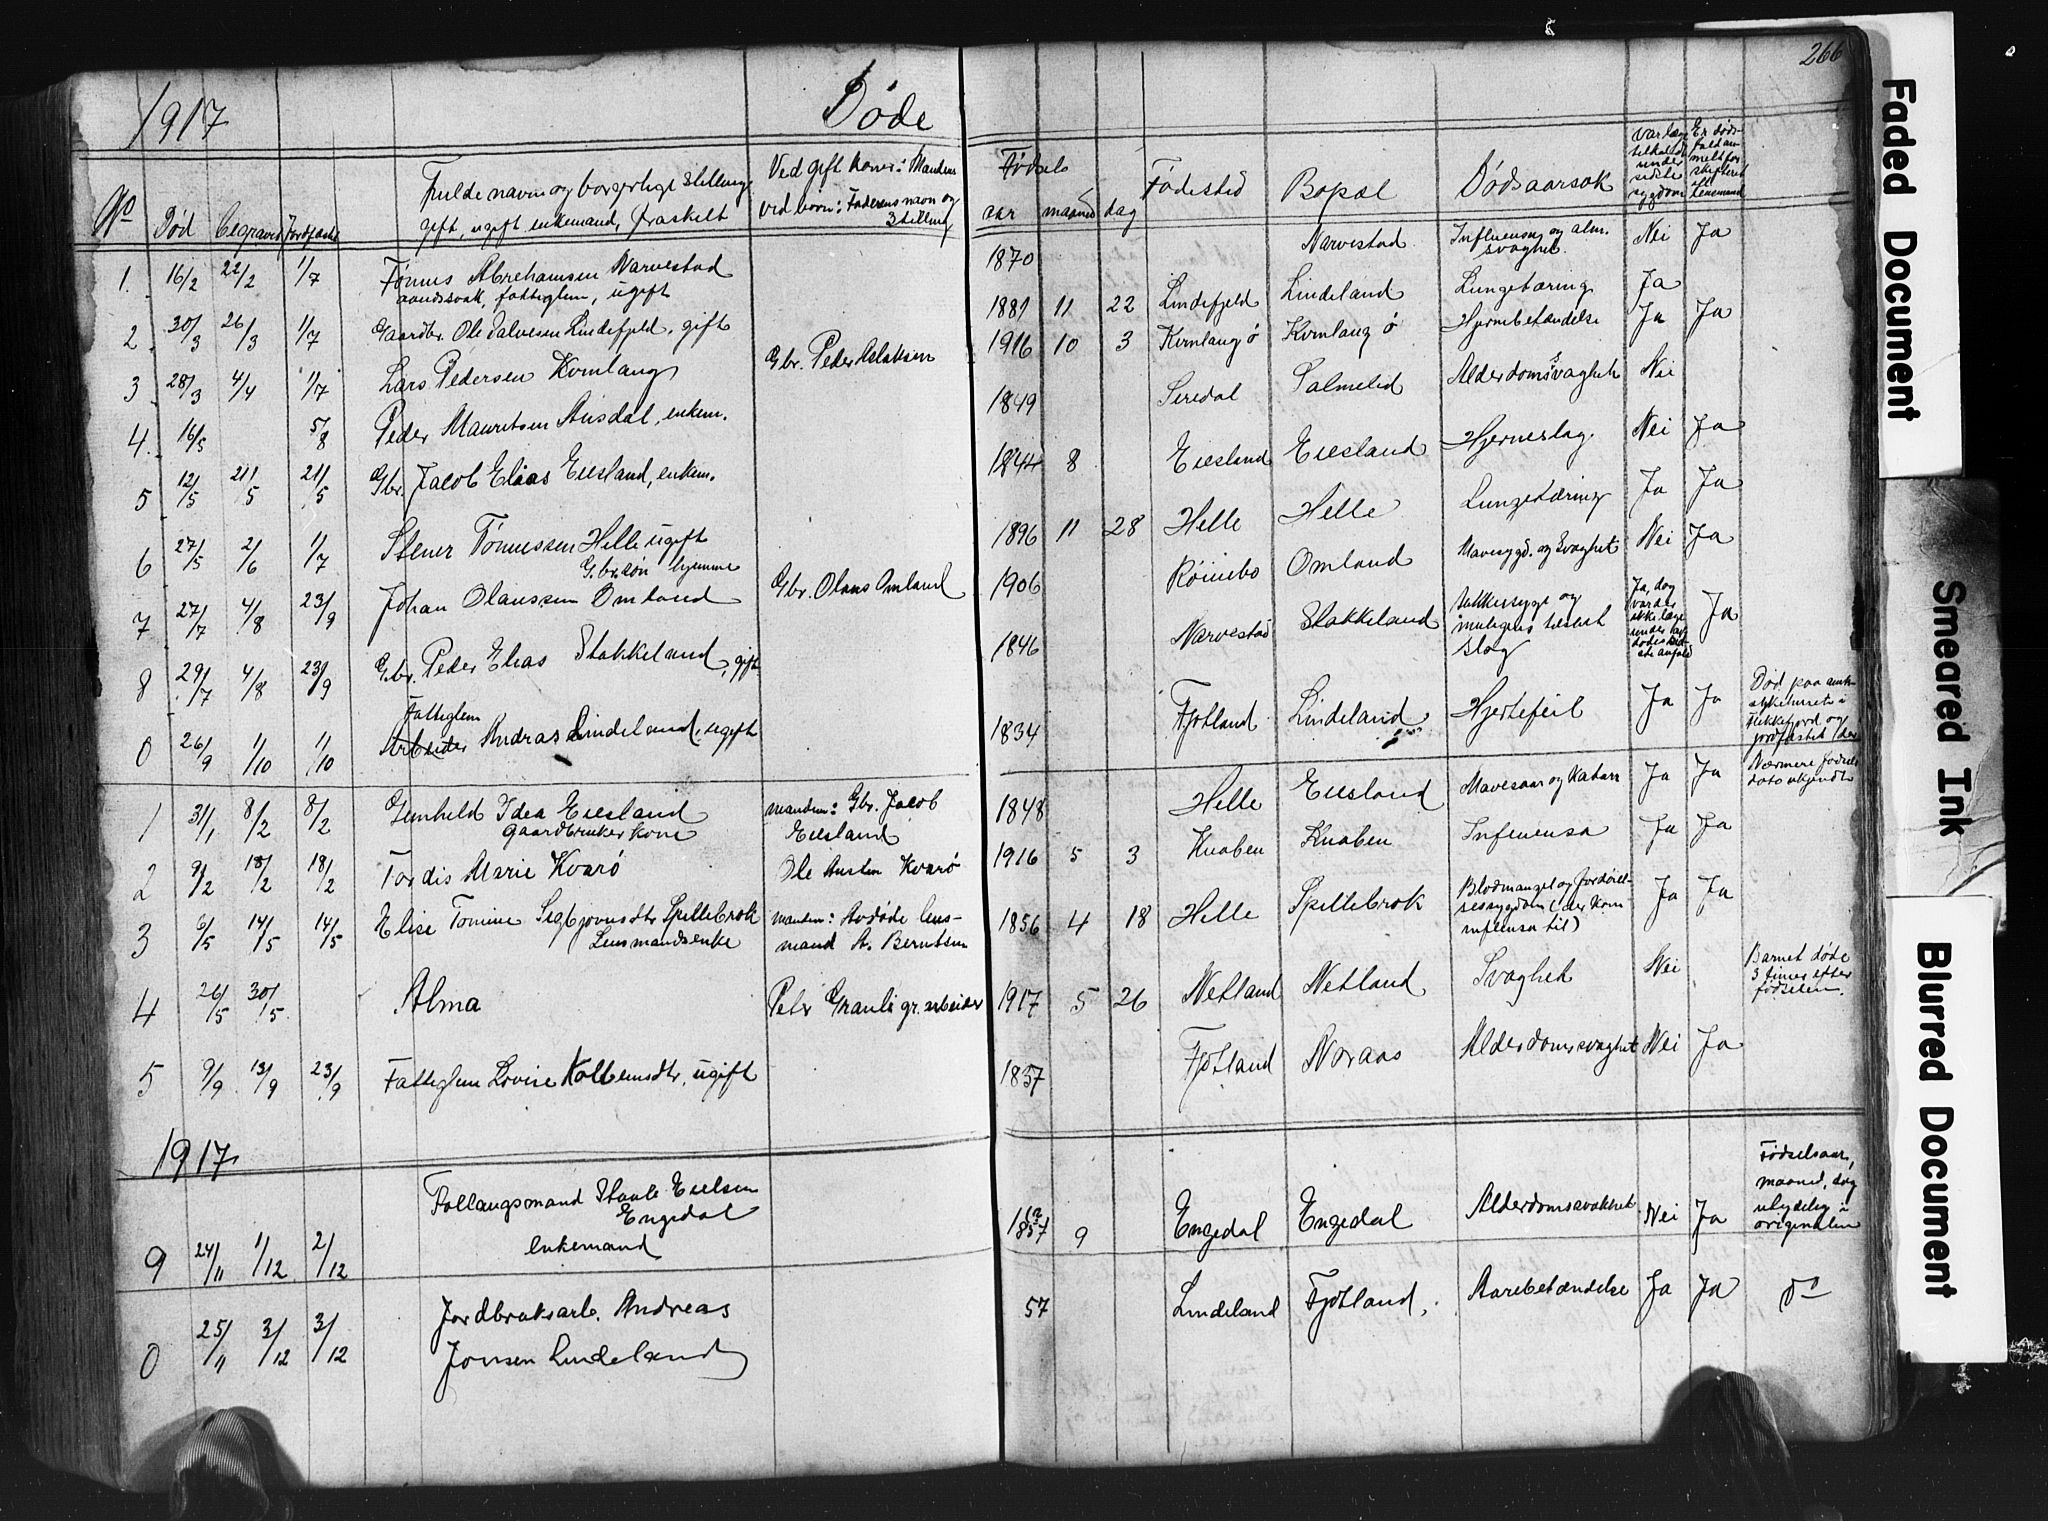 1917 Døde 266
No Død begravet Jordfæstet
Fulde navn og borgerlige stilling,
gift, ugift enkemand, fraskilt
Ved gift kone: Mandens
ved born: Faderens navn og
stilling
Fødsels
aar maaned dag
Fødested Bopæl Dødsaarsak
Var læge
tilkaldt
under
sidste
sygdom
Er døds-
fald an-
meldt for
skifteret
ell.
lensmand
1. 16/2 22/2 1/7 Tønnes Abrehamsen Narvestad 1870 Narvestad Influensa og alm. Nei Ja
aandssvak, fattiglem, ugift svaghet.
2 30/3 26/3 1/7 Gaardbr. Ole Salvesen Lindefjeld, gift 1881 11 22 Lindefjeld Lindeland Lungetæring Ja
3 28/3 4/4 1/7 Lars Pedersen Kvinlaug Gbr. Peder Aslaksen 1916 10 3 Kvinlaug ø Kvinlaug ø Hjernebetændelse Ja Ja
4 16/5 5/8 Peder Mauritsen Ausdal, enkem. 1849 Siredal Salmelid Alderdomssvaghet Nei
5 12/5 21/5 21/5 Gbr. Jacob Elias Eiesland, enkem. 1844 8 Eiesland Eiesland Hjerneslag. Nei Ja
6 27/5 2/6 1/7 Stener Tønnessen Helle ugift 1896 11 28 Helle Helle Lungetæring Ja Ja
Gbr.søn hjemme
7 27/7 4/8 23/9 Johan Olaussen Omland Gbr. Olaus Omland 1906 Røinebo Omland Mavesygd. og Svaghet Nei Ja
8 29/7 4/8 23/9 Gbr. Peder Elias Stakkeland, gift 1846 Narvestad Stakkeland Sukkersyge og
muligens tilstøt
slag
Ja, dog
var der
ikke læge
under
Ja
Fattiglem
0 26/9 1/10 1/10 Arbeider Andras Lindeland, ugift 1834 Fjotland Lindeland Hjertefeil Ja Ja
Død paa amts-
sykehuset i
Flekkefjord og
jordfæstet der
1 31/1 8/2 8/2 Gunhild Idea Eiesland manden: Gbr. Jacob 1848 Helle Eiesland Mavesaar og Katarr Ja Ja Nærmere fødsels
gaardbrukerkone Eiesland dato ukjendt
2 9/2 18/2 18/2 Tordis Marie Kvarø Ole Austen Kvarø 1916 5 3 Knaben Knaben Influensa Ja Ja
3 6/5 14/5 14/5 Elise Tomine Sigbjørnsdtr Spillebrok manden: Avdøde lens- 1856 4 18 Helle Spillebrok Blodmangel og fordøiel- Ja Ja
Lensmandsenke mand A. Berntsen sessygdom (der kom
influensa til)
4 26/5 30/5 Alma Petr Grauli gr. arbeider 1917 5 26 Netland Netland Svaghet Nei Barnet døde
3 timer efter
fødselen.
5 9/9 13/9 23/9 Fattiglem Lovise Kolbensdtr, ugift 1837 Fjotland Naraas Alderdomssvaghet Nei Ja
1917
Follaugsmand Staale Eielsen
Engedal
enkemand
9 24/11 1/12 2/12 1837 9 Engedal Engedal Alderdomssvakhet Nei Ja
Fødselsaar,
maaned, dag
utydelig i
originalen
0 25/11 3/12 3/12 Jordbruksarb. Andreas 57 Lindeland Fjotland, Aarebetændelse Ja Ja do
Jonsen Lindeland
Faded Document
Smeared Ink
Blurred Document